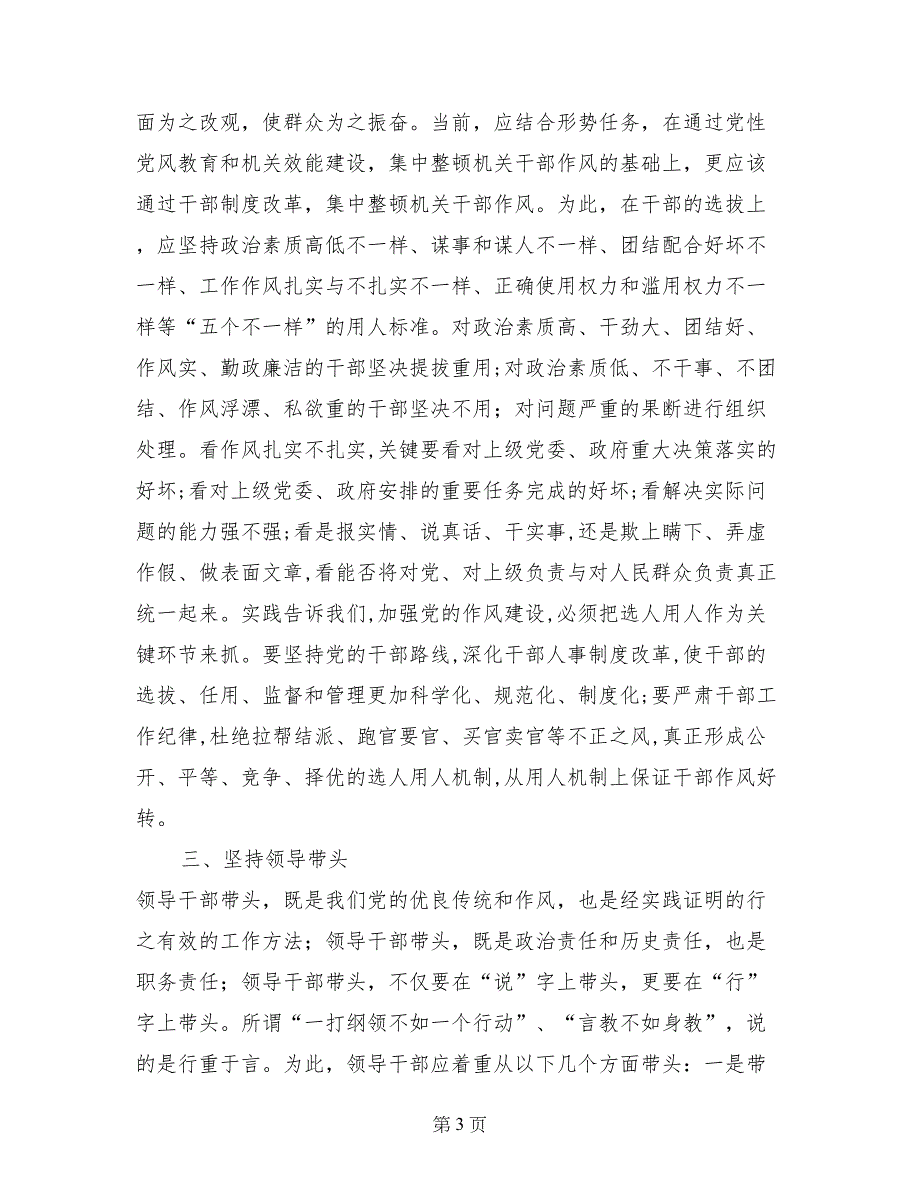 面为之改观，使群众为之振奋。当前，应结合形势任务，在通过党性
党风教育和机关效能建设，集中整顿机关干部作风的基础上，更应该
通过干部制度改革，集中整顿机关干部作风。为此，在干部的选拔上
，应坚持政治素质高低不一样、谋事和谋人不一样、团结配合好坏不
一样、工作作风扎实与不扎实不一样、正确使用权力和滥用权力不一
样等“五个不一样”的用人标准。对政治素质高、干劲大、团结好、
作风实、勤政廉洁的干部坚决提拔重用;对政治素质低、不干事、不团
结、作风浮漂、私欲重的干部坚决不用；对问题严重的果断进行组织
处理。看作风扎实不扎实,关键要看对上级党委、政府重大决策落实的
好坏;看对上级党委、政府安排的重要任务完成的好坏;看解决实际问
题的能力强不强;看是报实情、说真话、干实事,还是欺上瞒下、弄虚
作假、做表面文章,看能否将对党、对上级负责与对人民群众负责真正
统一起来。实践告诉我们,加强党的作风建设,必须把选人用人作为关
键环节来抓。要坚持党的干部路线,深化干部人事制度改革,使干部的
选拔、任用、监督和管理更加科学化、规范化、制度化;要严肃干部工
作纪律,杜绝拉帮结派、跑官要官、买官卖官等不正之风,真正形成公
开、平等、竞争、择优的选人用人机制,从用人机制上保证干部作风好
转。
三、坚持领导带头
领导干部带头，既是我们党的优良传统和作风，也是经实践证明的行
之有效的工作方法；领导干部带头，既是政治责任和历史责任，也是
职务责任；领导干部带头，不仅要在“说”字上带头，更要在“行”
字上带头。所谓“一打纲领不如一个行动”、“言教不如身教”，说
的是行重于言。为此，领导干部应着重从以下几个方面带头：一是带
第 3 页